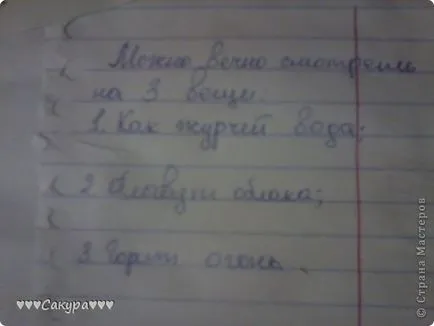 Можно вечно смотреть
на 3 вещи:
1. Как журчит вода;
2. Плывут облака;
3. Горит огонь.
♥♥♥Сакура♥♥♥
© Страна Мастеров